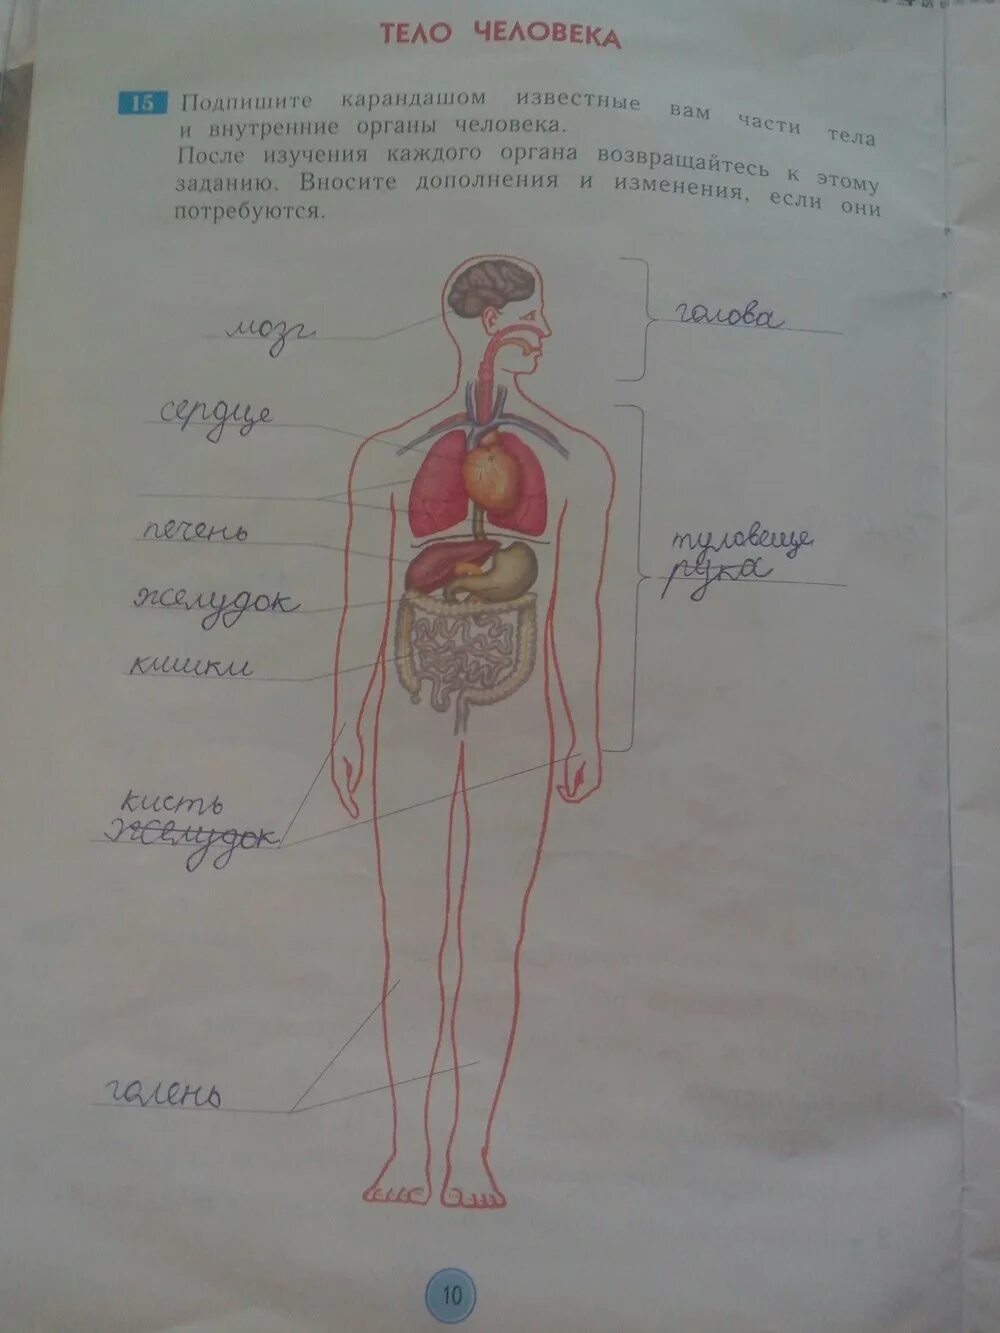 ТЕЛО ЧЕЛОВЕКА
15 Подпишите карандашом известные вам части тела
и внутренние органы человека.
После изучения каждого органа возвращайтесь к этому
заданию. Вносите дополнения и изменения, если они
потребуются.
мозг
голова
сердце
печень
туловеще
рука
желудок
кишки
кисть
желудок
голень
10